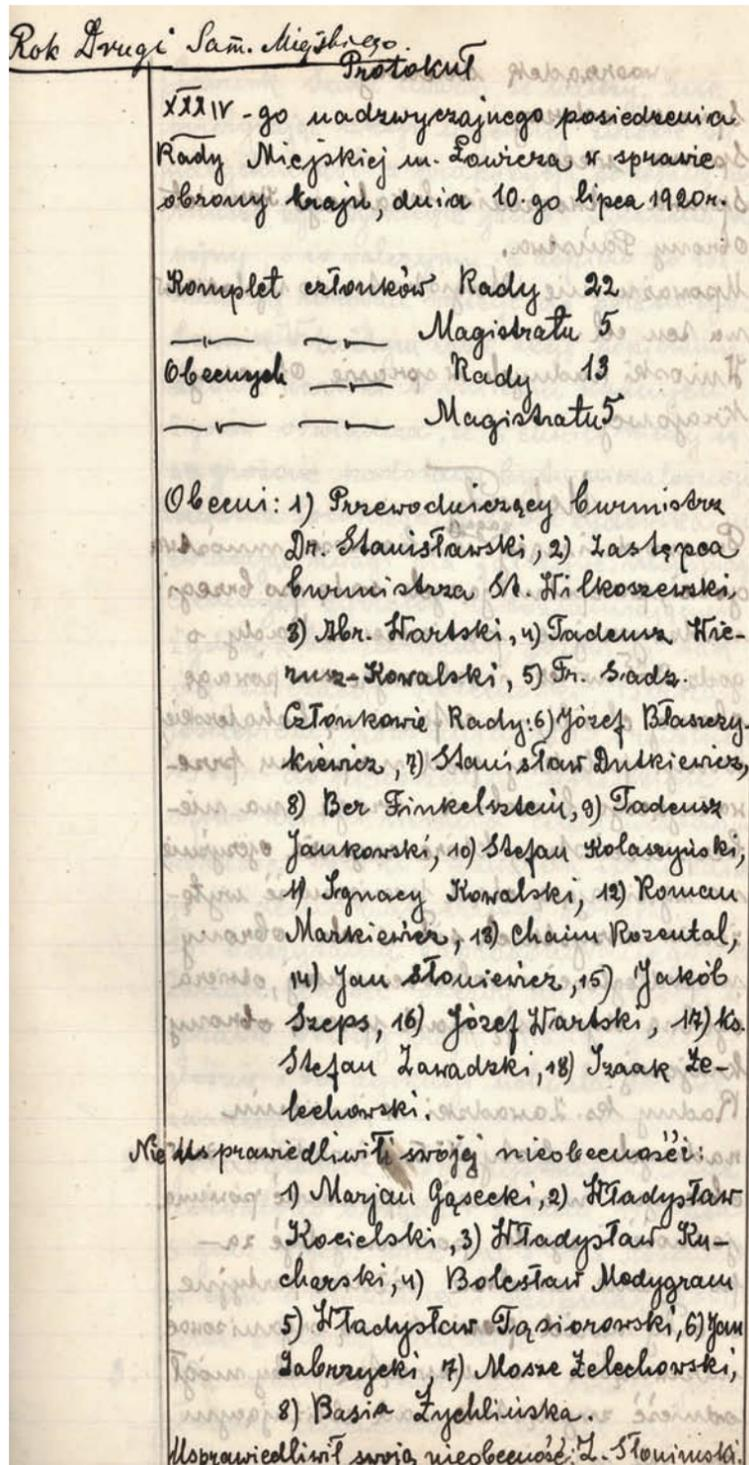 Rok Drugi Sam. Miejskiego.
Protokuł
XXXIV-go nadzwyczajnego posiedzenia
Rady Miejskiej m. Łowicza w sprawie
obrony kraju, dnia 10.go lipca 1920r.
Komplet członków Rady 22
—„— —„— Magistratu 5
Obecnych —„— Rady 13
—„— —„— Magistratu 5
Obecni: 1) Przewodniczący burmistrz
Dr. Stanisławski, 2) Zastępca
burmistrza St. Wilkoszewski,
3) Abr. Wartski, 4) Tadeusz Wie-
rusz-Kowalski, 5) Fr. Sadz.
Członkowie Rady: 6) Józef Błaszczy-
kiewicz, 7) Stanisław Dutkiewicz,
8) Ber Finkelsztein, 9) Tadeusz
Jankowski, 10) Stefan Kolaszyński,
11) Ignacy Kowalski, 12) Roman
Markiewicz, 13) Chaim Rozental,
14) Jan Słoniewicz, 15) Jakób
Szeps, 16) Józef Wartski, 17) Ks.
Stefan Zawadzki, 18) Izaak Że-
lechowski.
Nie usprawiedliwili swojej nieobecności:
1) Marjan Gąsecki, 2) Władysław
Kocielski, 3) Władysław Ku-
charski, 4) Bolesław Modygram
5) Władysław Tąsiorowski, 6) Jan
Zabrzycki, 7) Mosze Żelechowski,
8) Basia Żychlińska.
Usprawiedliwił swoją nieobecność: Z. Słonimski.